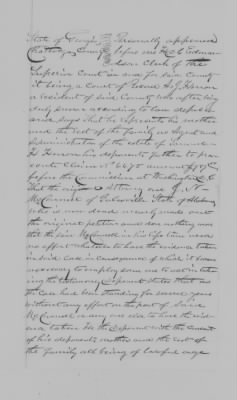 State of Georgia Personally appeared
Chattooga County before me
Clerk of the
Superior Court in and for said County
it being a Court of Record H J Henson
a resident of said County who after being
duly sworn according to law deposes
and says that he represents his mother
and the rest of the family as Agent and
Administrator of the estate of
H Henson his deponents father to
Claim No amount
before the Commission at Washington
That the original Attorney one J N
McConnell of State of Alabama
who is now dead merely made out
the original petition and done nothing more
that the said McConnell in his life time made
no effort whatever to have the evidence taken
in said case in consequence of which it became
necessary to employ some one to assist in taking
the testimony Deponent states that
the case had been standing for several years
without any effort on the part of said
McConnell or any one else to have the evid
ence taken He the deponent with the consent
of his deponents mother and the rest of
the family all being of lawful age